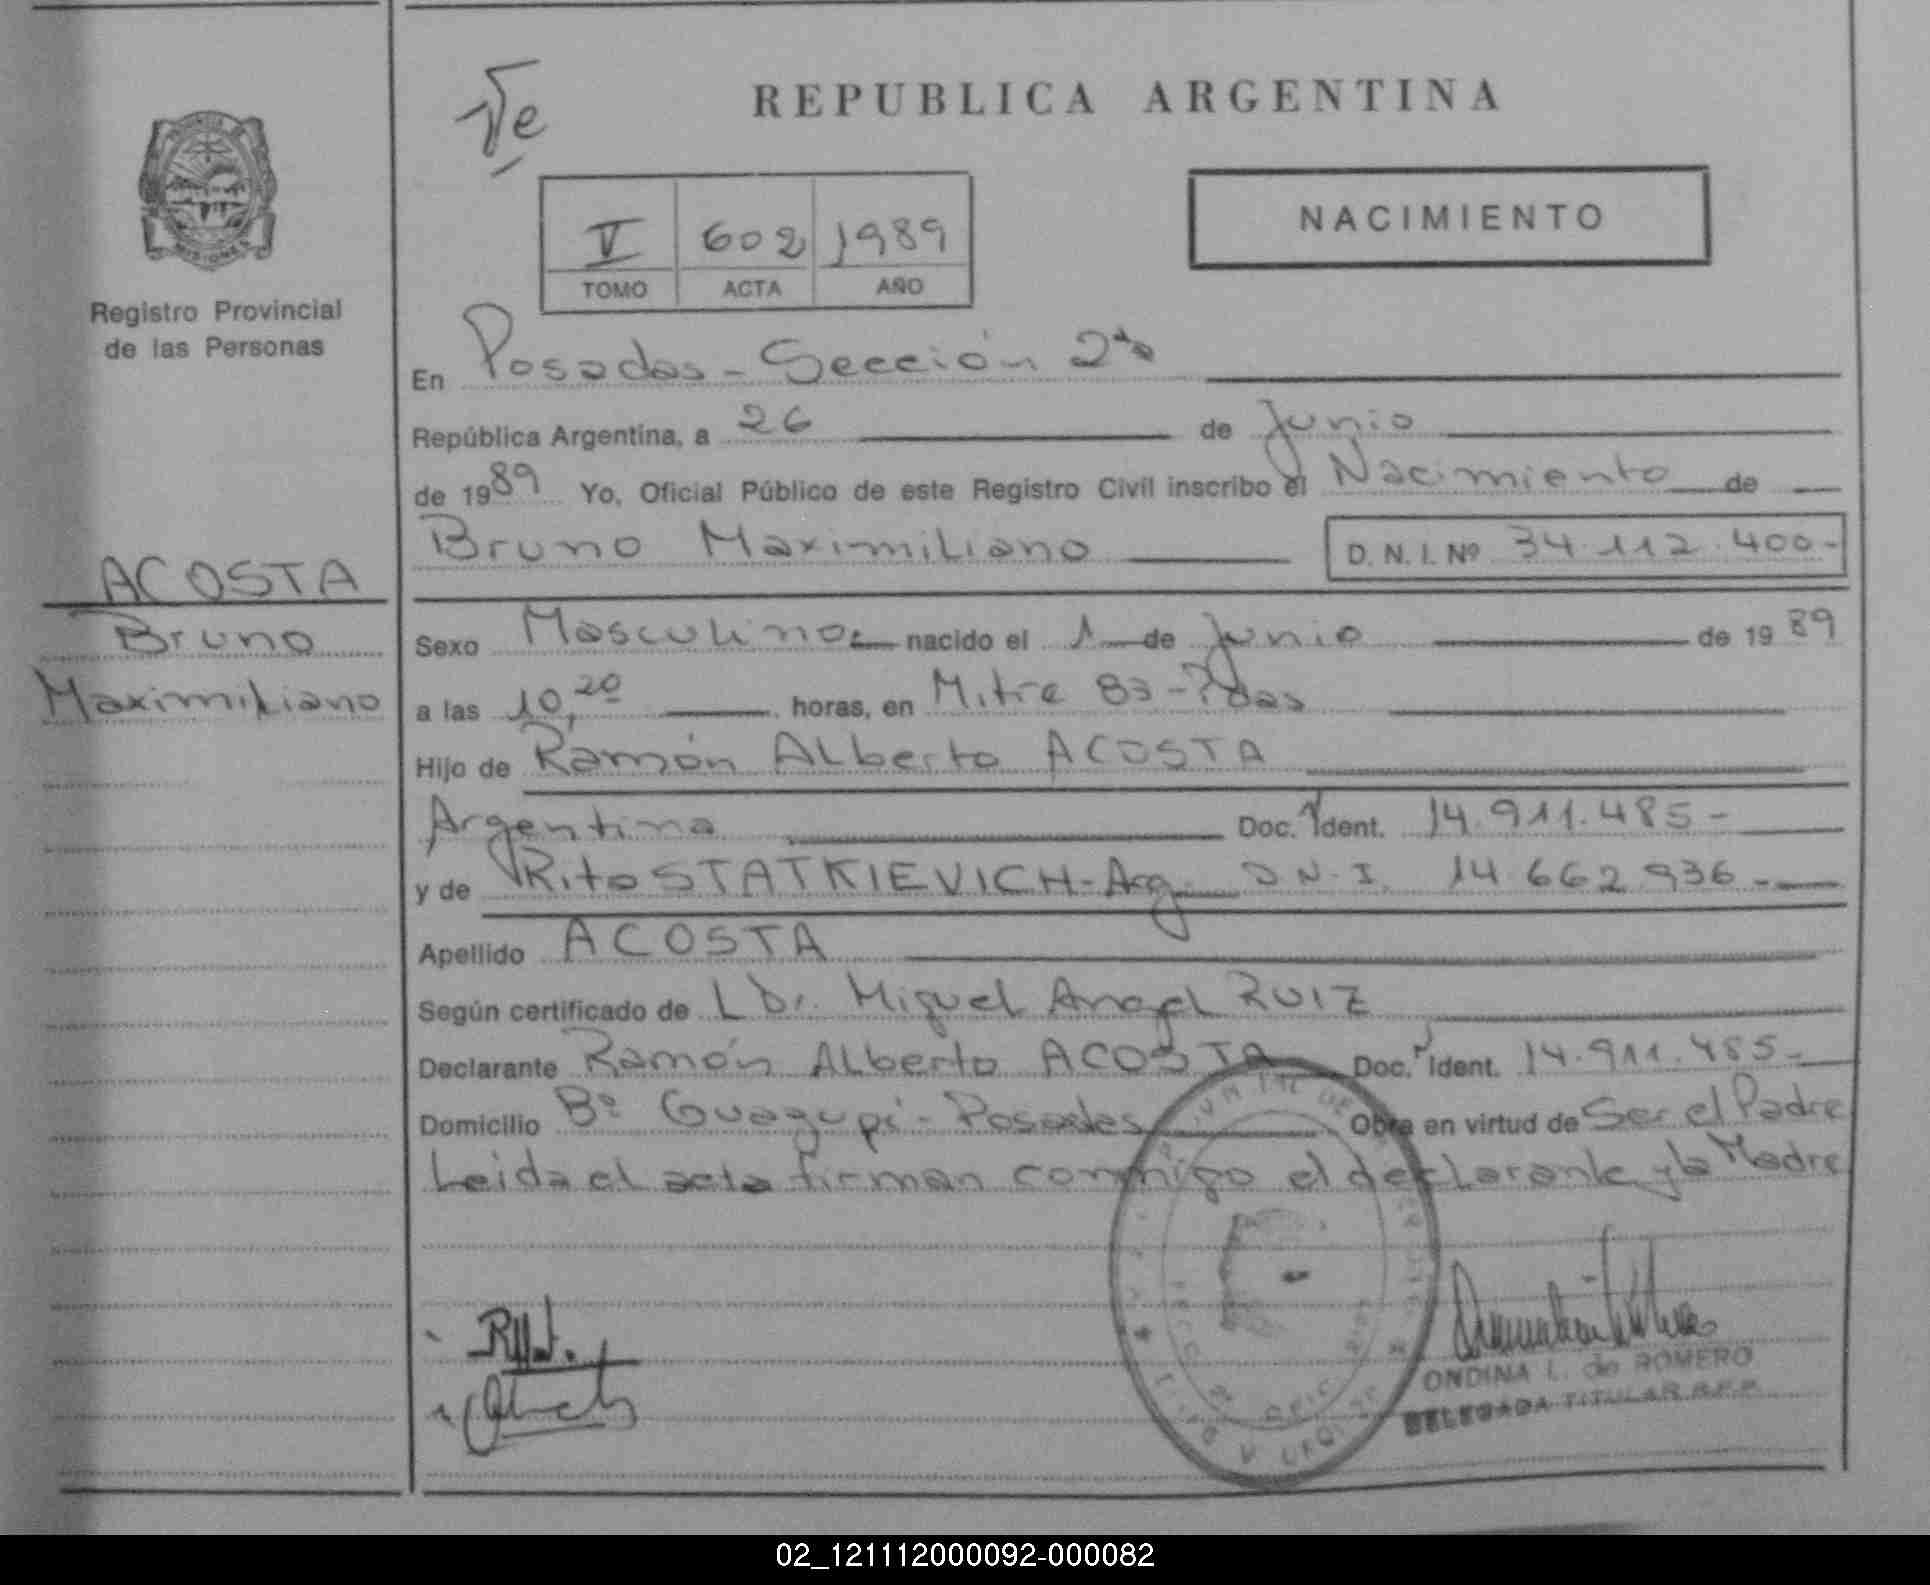 REPUBLICA ARGENTINA
NACIMIENTO
V 602 1989
TOMO ACTA AÑO
MISIONES
Registro Provincial
de las Personas
En Posadas - Sección 2da
República Argentina, a 26 de Junio
de 1989 Yo, Oficial Público de este Registro Civil inscribo el Nacimiento de
Bruno Maximiliano D. N. I. Nº 34.112.400-
ACOSTA
Bruno
Maximiliano
Sexo Masculino nacido el 1 de Junio de 1989
a las 10,20 horas, en Mitre 83 - Pdas
Hijo de Ramón ALberto ACOSTA
Argentina Doc. Ident. 14.911.485-
y de Rita STATKIEVICH - Arg. D.N.I. 14.662.936-
Apellido ACOSTA
Según certificado de L Dr. Miguel Angel RUIZ
Declarante Ramón ALberto ACOSTA Doc. Ident. 14.911.485-
Domicilio Bº Guazupi - Posadas Obra en virtud de Ser el Padre
Leida el acta firman conmigo el declarante y la Madre
ONDINA L. de ROMERO
DELEGADA TITULAR R.P.P.
02_121112000092-000082